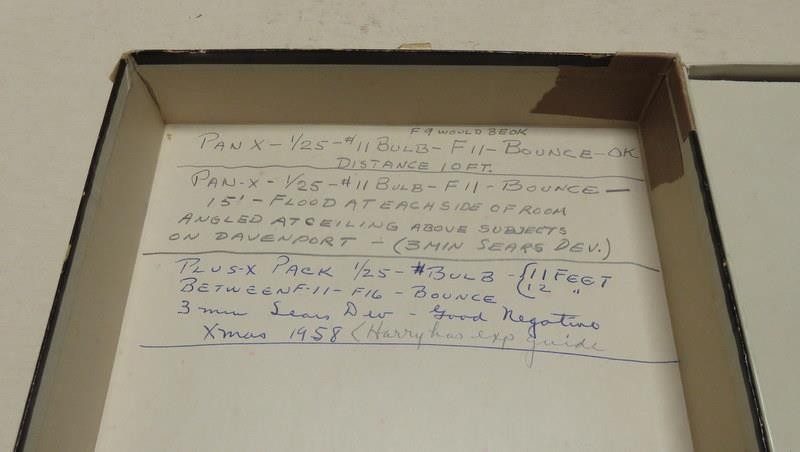 F 9 WOULD BE OK
PAN X - 1/25 - #11 BULB - F 11 - BOUNCE - OK
DISTANCE 10 FT.
PAN-X - 1/25 - #11 BULB - F 11 - BOUNCE -
15' - FLOOD AT EACH SIDE OF ROOM
ANGLED AT CEILING ABOVE SUBJECTS
ON DAVENPORT - (3 MIN SEARS DEV.)
PLUS-X PACK 1/25 - #BULB - { 11 FEET
BETWEEN F-11 - F16 - BOUNCE { 12 "
3 min Sears Dev - Good Negative
Xmas 1958 (Harry has exp guide